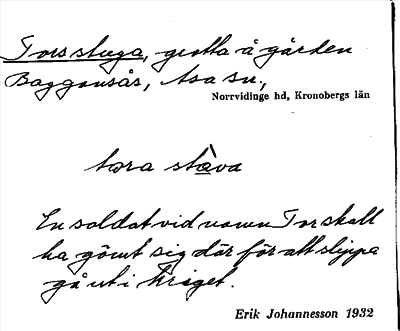 Tors stuga, grotta å gården
Baggansås, Asa sn.,
Norrvidinge hd, Kronobergs län
tora stàva
En soldat vid namn Tor skall
ha gömt sig där för att slippa
gå ut i kriget.
Erik Johannesson 1932